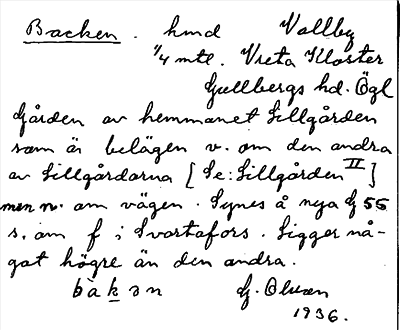 Backen. hmd Vallby
1/4 mtl. Vreta Kloster
Gullbergs hd. Ögl
Gården av hemmanet Lillgården
som är belägen v. om den andra
av Lillgårdarna [Se: Lillgården II]
men n. om vägen. Synes å nya G 55
s. om f i Svartafors. Ligger nå-
got högre än den andra.
bàkən G. Olsson
1936.